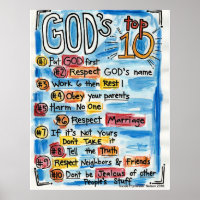 GOD's top 10
#1 Put GOD first
#2 Respect GOD's name
#3 Work 6 then Rest 1
#4 Obey your parents
#5 Harm No One
#6 Respect Marriage
#7 If it's Not yours
Don't TAKE it
#8 Tell the Truth
#9 Respect Neighbors & Friends
#10 Dont be Jealous of other
People's Stuff